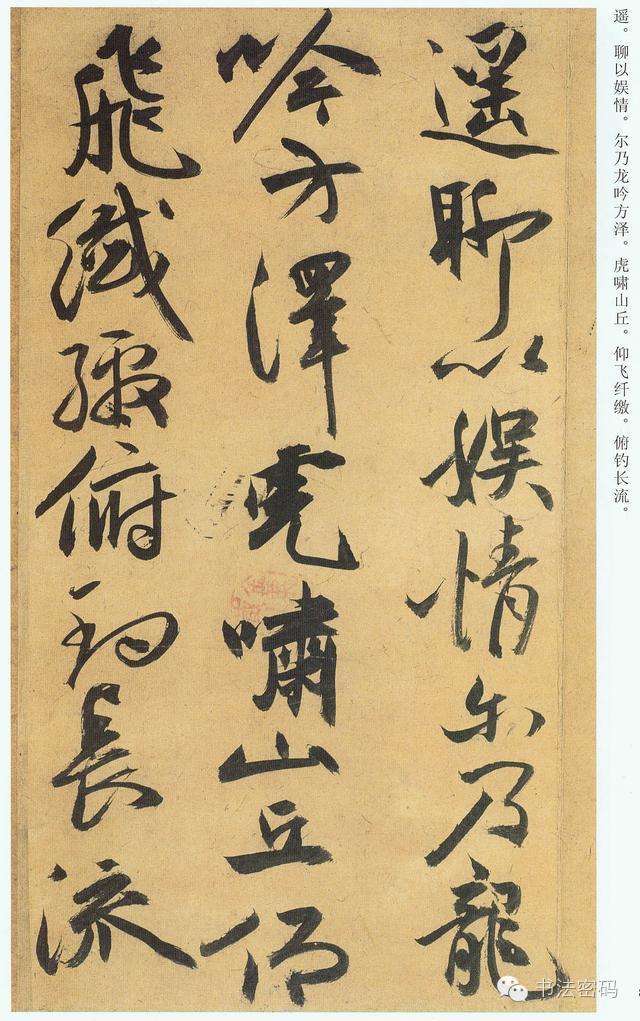 遥。聊以娱情。尔乃龙吟方泽。虎啸山丘。仰飞纤缴。俯钓长流。
遥聊以娱情尔乃龍
吟方澤虎嘯山丘仰
飛纖繳俯釣長流
书法密码